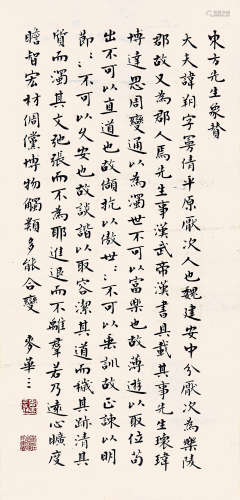 東方先生象贊
大夫諱朔字曼倩平原厭次人也魏建安中分厭次為樂陵
郡故又為郡人焉先生事漢武帝漢書具載其事先生瓌瑋
博達思周變通以為濁世不可以富樂也故薄遊以取位苟
出不可以直道也故頡抗以傲世々々不可以垂訓故正諫以明
節々々不可以久安也故詼諧以取容潔其道而穢其跡清其
質而濁其文弛張而不為邪進退而不離羣若乃遠心曠度
瞻智宏材倜儻博物觸類多能合變
麥華三